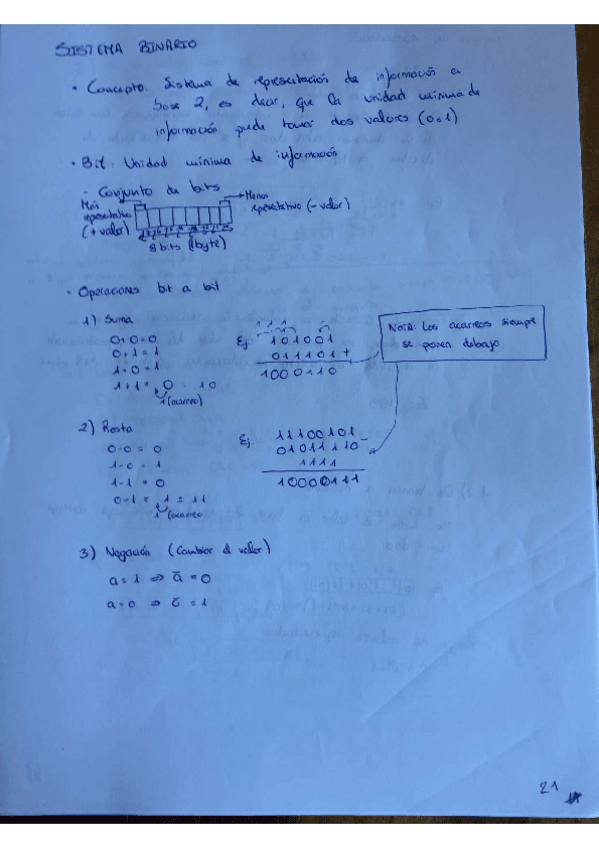 SISTEMA BINARIO
• Concepto: Sistema de representación de información en
base 2, es decir, que la unidad mínima de
información puede tomar dos valores (0 o 1)
• Bit: Unidad mínima de información
- Conjunto de bits
Más
representativo
(+ valor)
Menos
representativo (- valor)
8 bits (1 byte)
• Operaciones bit a bit
1) Suma
0+0=0
0+1=1
1+0=1
1+1= 0 = 10
1 (acarreo)
Ej.
1 1 1 1
101001
011101 +
1000110
NOTA: Los acarreos siempre
se ponen debajo
2) Resta
0-0 = 0
1-0 = 1
1-1 = 0
0-1 = 1 = 11
1 (acarreo
Ej.
11100101 -
01011110
1111
10000111
3) Negación (Cambiar el valor)
a=1 ⇒ ā=0
a=0 ⇒ ā=1
21